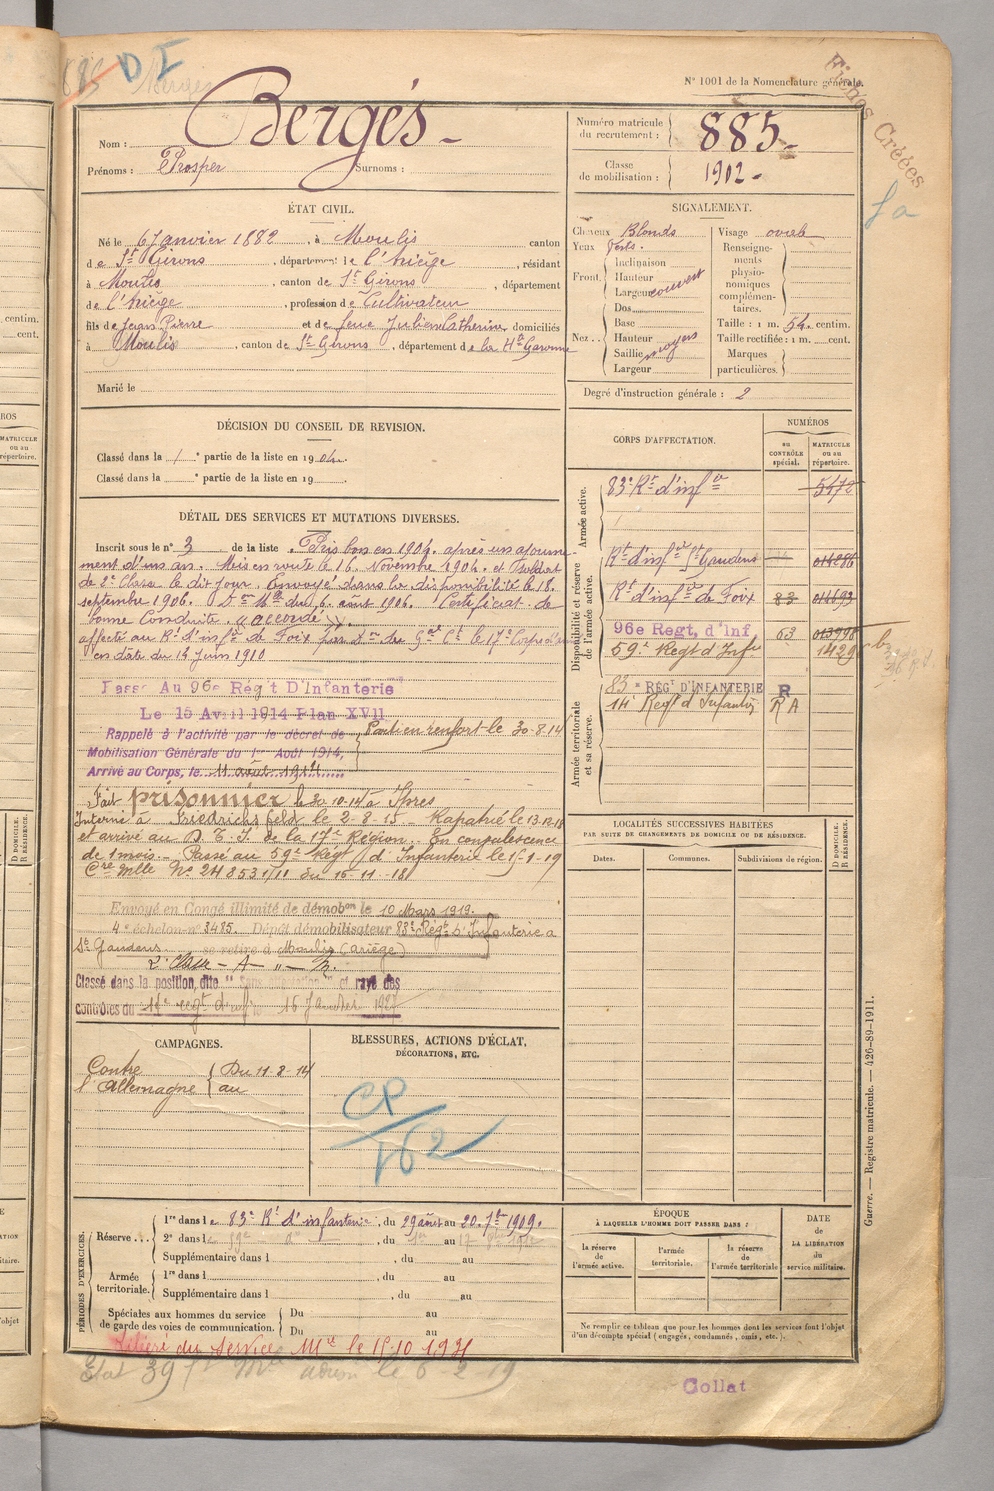 885 D I Bergès
N° 1001 de la Nomenclature générale.
Fiches Créées
fa
Nom : Bergés -
Prénoms : Prosper Surnoms :
Numéro matricule du recrutement : 885 -
Classe de mobilisation : 1902 -
ÉTAT CIVIL.
Né le 6 Janvier 1882, à Moulis canton
de St Girons, département de l'Ariège, résidant
à Moulis, canton de St Girons, département
de l'Ariège, profession de Cultivateur
fils de Jean Pierre et de feue Julien Catherine domiciliés
à Moulis, canton de St Girons, département de la Hte Garonne
Marié le
SIGNALEMENT.
Cheveux Blonds
Yeux Verts.
Front. Inclinaison
Hauteur
Largeur couvert
Nez. Dos
Base
Hauteur
Saillie moyens
Largeur
Visage ovale
Renseignements physionomiques complémentaires.
Taille : 1 m. 54 centim.
Taille rectifiée : 1 m. cent.
Marques particulières.
Degré d'instruction générale : 2
DÉCISION DU CONSEIL DE REVISION.
Classé dans la 1e partie de la liste en 1904.
Classé dans la e partie de la liste en 19
CORPS D'AFFECTATION.
NUMÉROS
au CONTRÔLE spécial.
MATRICULE ou au répertoire.
Armée active.
83e Rt d'infie 5472
Disponibilité et réserve de l'armée active.
Rt d'infie St Gaudens 014286
Rt d'infie de Foix 83 014693
96e Regt, d'Inf 63 013998
59e Regt d'Infie 1429
Armée territoriale et sa réserve.
83e RÉGT D'INFANTERIE R
14e Regt d'Infantie R A
DÉTAIL DES SERVICES ET MUTATIONS DIVERSES.
Inscrit sous le n° 3 de la liste. Pris bon en 1904. après un ajourne-
ment d'un an. Mis en route le 16 Novembre 1904. et Soldat
de 2e Classe le dit jour. Envoyé dans la disponibilité le 18
septembre 1906. Don Mle du 6 août 1906. Certificat de
bonne Conduite "accordé".
affecté au Rt d'infie de Foix
en date du 14 Juin 1910
Passé Au 96e Régt D'Infanterie
Le 15 Avril 1914 Plan XVII
Rappelé à l'activité par le décret de
Mobilisation Générale du 1er Août 1914,
Arrivé au Corps, le 11 août 1914
Parti en renfort le 30-8-14
Fait prisonnier le 30-10-14 à Ypres
Interné à Friedrichsfeld le 2-8-15 Rapatrié le 13-12-18
et arrivé au D. T. I. de la 17e Région. En convalescence
de 1 mois. Passé au 59e Régt d'Infanterie le 15-1-19
Cre Mlle N° 248531/11 du 15-11-18
Envoyé en Congé illimité de démobon le 10 Mars 1919.
4e échelon n° 3485. Dépôt démobilisateur 83e Régt d'Infanterie à
St Gaudens se retire à Moulis (Ariège)
Classé dans la position, dite "Sans affectation" et rayé des
contrôles du 14e regt d'infie 15 Janvier 1927
LOCALITÉS SUCCESSIVES HABITÉES
PAR SUITE DE CHANGEMENTS DE DOMICILE OU DE RÉSIDENCE.
Dates. Communes. Subdivisions de région. D DOMICILE. R RÉSIDENCE.
CAMPAGNES.
Contre l'Allemagne { Du 11-8-14
au
BLESSURES, ACTIONS D'ÉCLAT,
DÉCORATIONS, ETC.
CP/162
PÉRIODES D'EXERCICES.
Réserve... 1re dans le 83e Rt d'infanterie, du 29 août au 20 7bre 1909.
2e dans le 59e, du 1er au 17
Supplémentaire dans l, du au
Armée territoriale. 1re dans l, du au
Supplémentaire dans l, du au
Spéciales aux hommes du service de garde des voies de communication. Du au
Du au
ÉPOQUE
À LAQUELLE L'HOMME DOIT PASSER DANS :
la réserve de l'armée active.
l'armée territoriale.
la réserve de l'armée territoriale
DATE DE LA LIBÉRATION du service militaire.
Ne remplir ce tableau que pour les hommes dont les services font l'objet
d'un décompte spécial (engagés, condamnés, omis, etc.).
Libéré du service Mre le 15-10-1931
Etat 39 le 6-2-19
Collat
Guerre. — Registre matricule. — 426-89-1911.